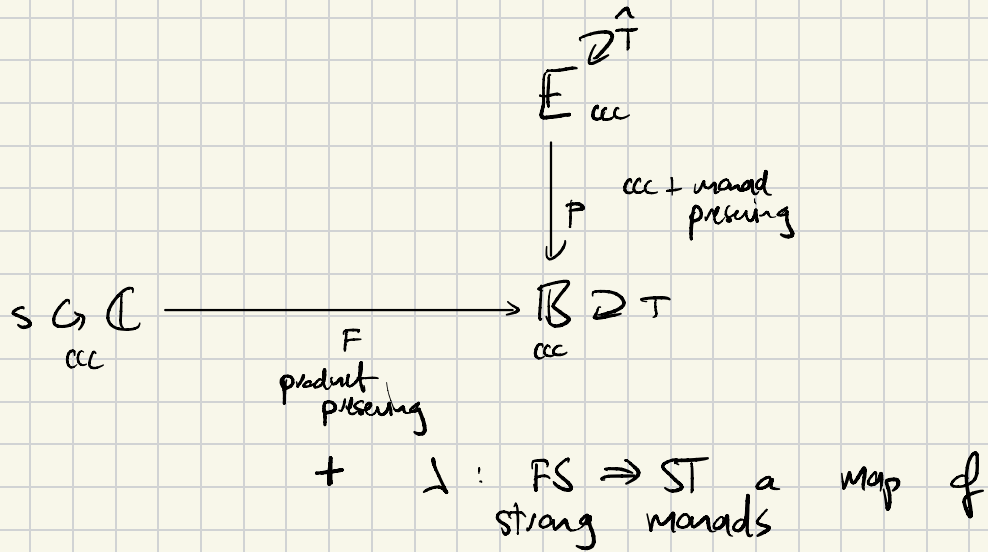 T̂
𝔼 ccc
p
ccc + monad
preserving
S ℂ
ccc
F
product
preserving
𝔹 T
ccc
+ λ : FS ⇒ ST a map of
strong monads